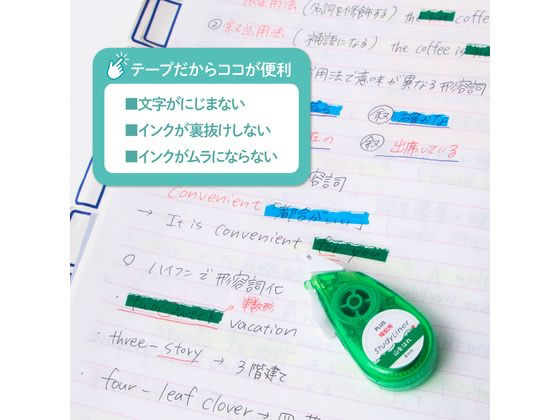 限定用法 (名詞を修飾する) the coffee
② 叙述用法 (補語になる) the coffee is
用法で意味が異なる形容詞
テープだからココが便利
■文字がにじまない
■インクが裏抜けしない
■インクがムラにならない
叙
在の
叙 出席している
容詞
Convenient 「都合がいい」
→ It is convenient for you
○ ハイフンで形容詞化
単数形
vacation
three-story → 3階建て
four-leaf clover → 四
PLUS
暗記用
StudyLiner
山をはれ
6mm